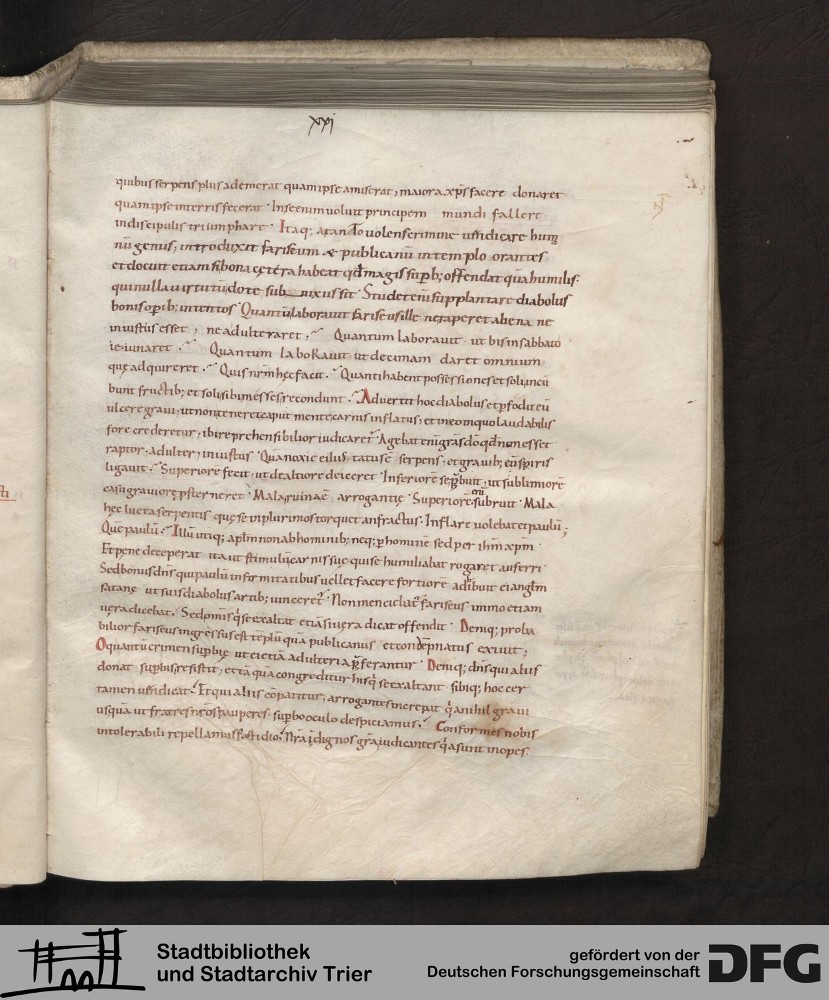 xxi
quibus serpens plus ademerat quam ipse amiserat, maiora xp̄s facere donaret
quam ipse in terris fecerat. In se enim voluit principem mundi fallere
in discipulis triumphare. Itaq; a tanto volens crimine
nū genus, introduxit fariseum & publicanū in templo orantes
et docuit etiam si bona cetera habeat qđ magis supb; offendat quā humilis.
qui nulla virtutū dote subnixus sit. Studet eni supplantare diabolus
bonis opib; intentos. Quantū laboravit fariseus ille ne raperet aliena ne
iniustus esset, ne adulteraret. Quantum laboravit ut bis in sabbato
ieiunaret. Quantum laboravit ut decimam daret omnium
que adquireret. Quis nr̄m hęc facit. Quanti habent possessiones et
bunt fructib; et soli sibi messes recondunt. Advertit hoc diabolus et pfodit eū
ulcere gravi, ut non teneret caput mente carnis inflatus, et in eo in quo laudabilis
fore crederetur, ibi reprehensibilior iudicaretr. Agebat eni grās dō qđ non esset
raptor, adulter, iniustus. Quā noxie eius
ligavit. Superiore fecit, ut de altiore deiceret. Inferiore ut sublimiore
casu graviore psterneret. Mala ruina ē arrogantię. Superiore etiā subruit. Mala
hęc lucta serpentis quę se in plurimos torquet anfractus. Inflare volebat et paulū;
Que paulū. Illū utiq; aplm non ab hominib; neq; p hominē sed per ihm xpm.
Et pene deceperat ita ut stimulū carnis suę quise humiliabat rogaret auferri
Sed bonus dns qui paulū infirmitatibus vellet facere fortiorē
satanę ut suis diabolus artib; vinceretr. Non mendax fariseus immo etiam
vera dicebat. Sed omis q se exaltat etiā si vera dicat offendit. Deniq; proba
bilior fariseus ingressus est teplū quā publicanus et condepnatus exivit;
O quantū crimen supbię ut ei etiā adulteria pferantur. Deniq; dns qui aliis
donat supbis resistit, et tā quā congreditur his q se exaltant sibiq; hoc cer
tamen vendicat. Et qui aliis cōpatitur, arrogantes increpat q a nihil gravi
usquā ut fratres nros pauperes supbo oculo despiciamus. Conformes nobis
intolerabili repellamus fastidio. Nra indignos gra iudicantes q a sunt inopes.
Stadtbibliothek
und Stadtarchiv Trier
gefördert von der
Deutschen Forschungsgemeinschaft
DFG